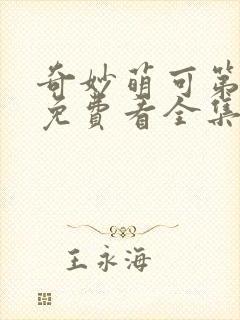 奇妙萌可第
免费看全集
王永海